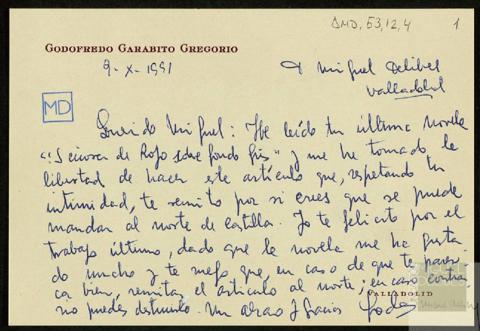 AMD, 53, 12, 4
1
GODOFREDO GARABITO GREGORIO
9-X-1991
A Miguel Delibes
Valladolid
MD
Querido Miguel: He leído tu última novela
"Señora de Rojo sobre fondo gris" y me he tomado la
libertad de hacer este artículo que, respetando tu
intimidad, te remito por si crees que se puede
mandar al norte de Castilla. Yo te felicito por el
trabajo último, dado que la novela me ha gusta-
do mucho y te ruego que, en caso de que te parez-
ca bien, remitas el artículo al norte; en caso contra
no puedes destruirlo. Un abrazo y gracias
VALLADOLID